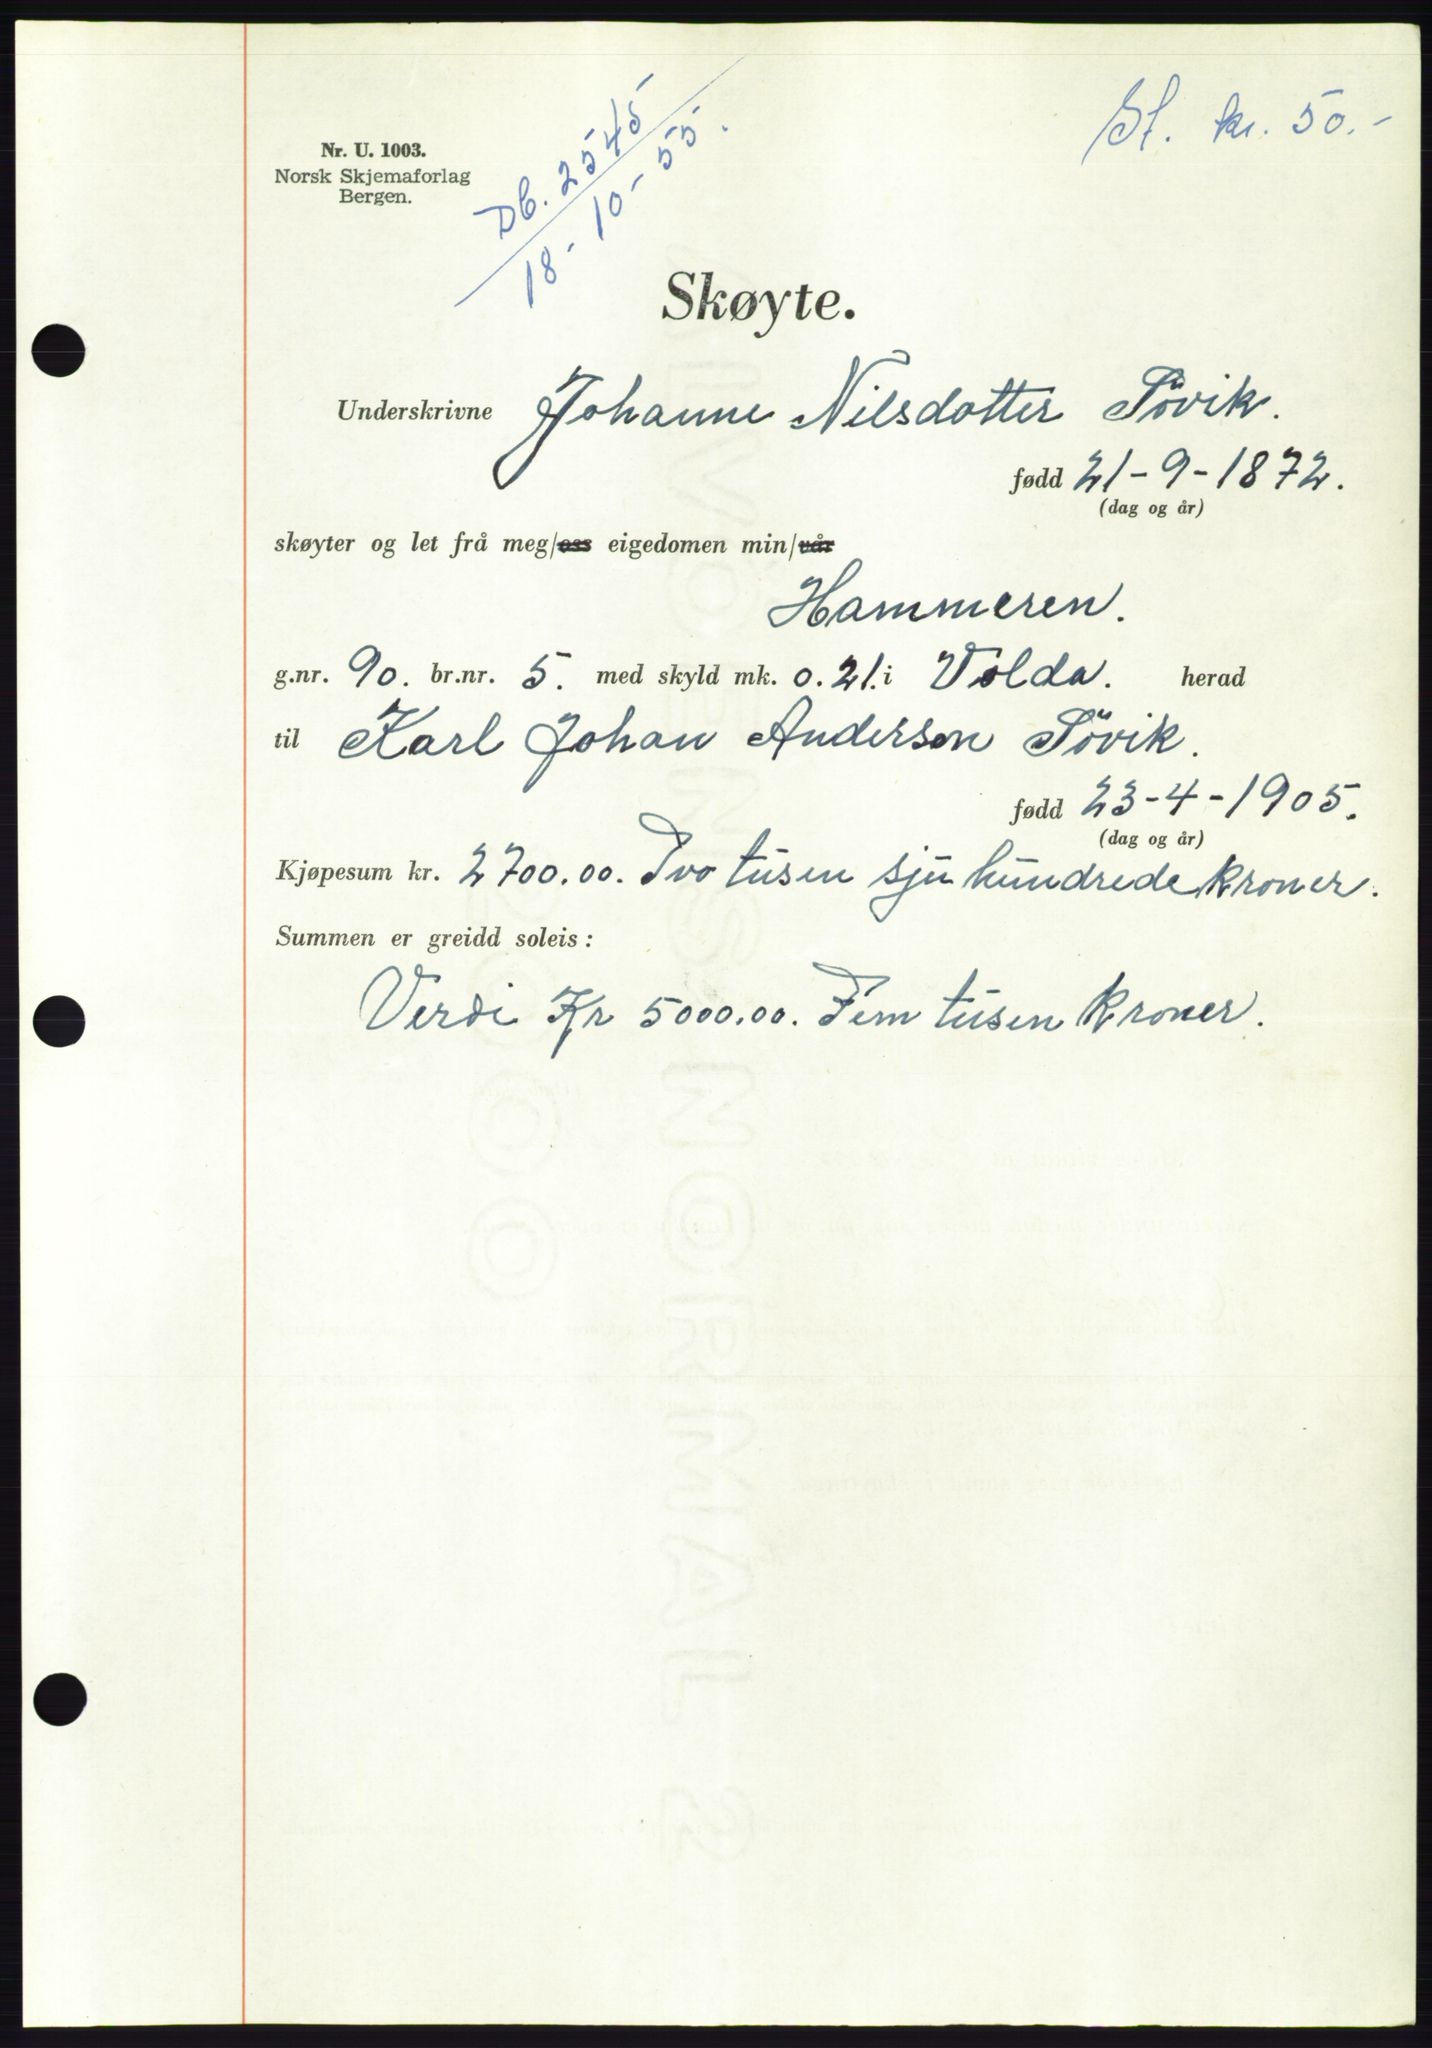 St. kr. 50.-
Db. 2545
18-10-55.
Nr. U. 1003.
Norsk Skjemaforlag
Bergen.
Skøyte.
Underskrivne Johanne Nilsdotter Løvik.
fødd 21-9-1872.
(dag og år)
skøyter og let frå meg/oss eigedomen min/vår
Hammeren.
g.nr. 90. br.nr. 5. med skyld mk. 0.21. i Volda. herad
til Karl Johan Anderson Løvik.
fødd 23-4-1905.
(dag og år)
Kjøpesum kr. 2700.00. Tvo tusen sju hundrede kroner.
Summen er greidd soleis:
Verdi Kr 5000.00. Fem tusen kroner.